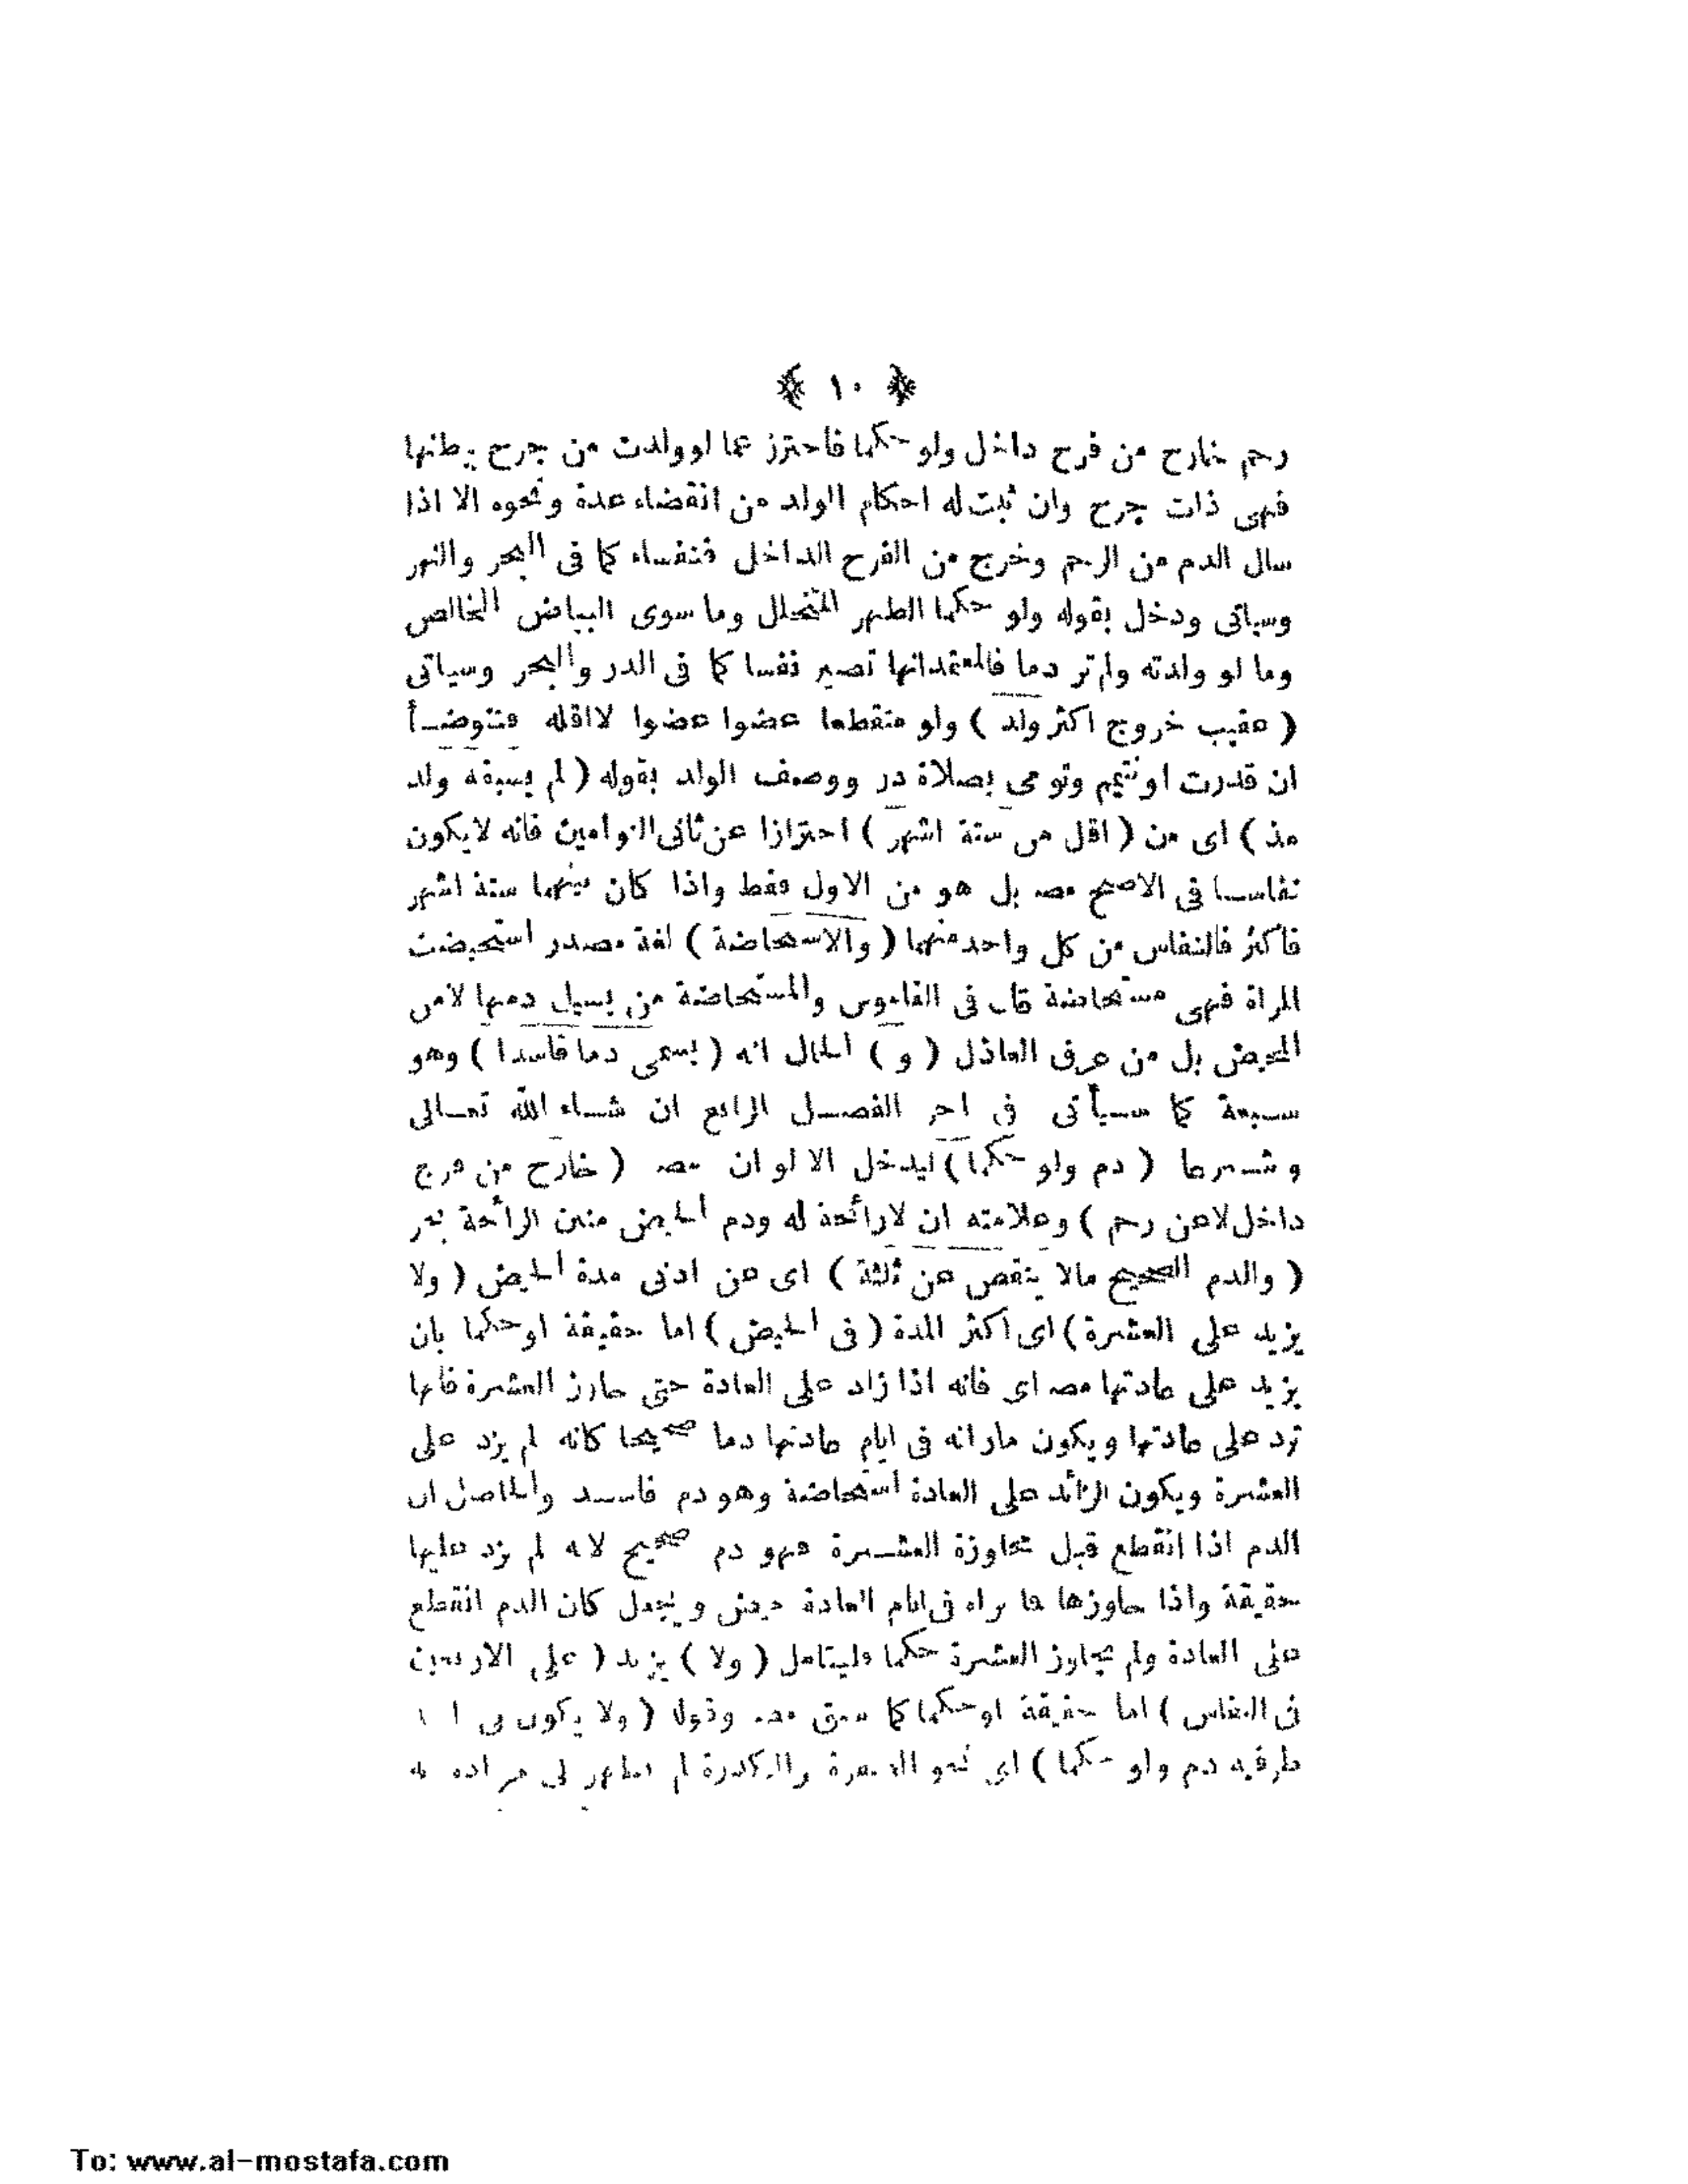 ﴿ ١٠ ﴾
رحم خارج من فرج داخل ولو حكما فاحترز عما لو ولدت من جرح ببطنها
فهى ذات جرح وان ثبت له احكام الولد من انقضاء عدة ونحوه الا اذا
سال الدم من الرحم وخرج من الفرج الداخل فنفساء كما فى البحر والنهر
وسياتى ودخل بقوله ولو حكما الطهر المتخلل وما سوى البياض الخالص
وما لو ولدته ولم تر دما فالمعتمد انها تصير نفسا كما فى الدر والبحر وسياتى
( عقيب خروج اكثر ولد ) ولو متقطعا عضوا عضوا لا اقله فتتوضأ
ان قدرت او تتيمم وتومى بصلاة در ووصف الولد بقوله ( لم يسبقه ولد
مذ ) اى من ( اقل من ستة اشهر ) احترازا عن ثانى التوامين فانه لايكون
نفاسا فى الاصح مصه بل هو من الاول فقط واذا كان بينهما ستة اشهر
فاكثر فالنفاس من كل واحد منهما ( والاستحاضة ) لغة مصدر استحيضت
المراة فهى مستحاضة قال فى القاموس والمستحاضة من يسيل دمها لامن
الحيض بل من عرق العاذل ( و ) الحال انه ( يسمى دما فاسدا ) وهو
سبعة كما سيأتى فى اخر الفصل الرابع ان شاء الله تعالى
وشرعا ( دم ولو حكما ) ليدخل الالوان مصه ( خارج من فرج
داخل لاعن رحم ) وعلامته ان لارائحة له ودم الحيض منتن الرائحة بحر
( والدم الصحيح مالا ينقص عن ثلثة ) اى عن ادنى مدة الحيض ( ولا
يزيد على العشرة ) اى اكثر المدة ( فى الحيض ) اما حقيقة او حكما بان
يزيد على عادتها مصه اى فانه اذا زاد على العادة حتى جاوز العشرة فانها
ترد على عادتها ويكون ماراته فى ايام عادتها دما صحيحا كانه لم يزد على
العشرة ويكون الزائد على العادة استحاضة وهو دم فاسد والحاصل ان
الدم اذا انقطع قبل مجاوزة العشرة فهو دم صحيح لانه لم يزد عليها
حقيقة واذا جاوزها فما تراه فى ايام العادة حيض ويجعل كان الدم انقطع
على العادة ولم يجاوز العشرة حكما فليتامل ( ولا ) يزيد ( على الاربعين
فى النفاس ) اما حقيقة او حكما كما سبق مصه وقوله ( ولا يكون فى
طرفيه دم ولو حكما ) اى نحو الصفرة والكدرة لم يظهر لى مراده به
To: www.al-mostafa.com